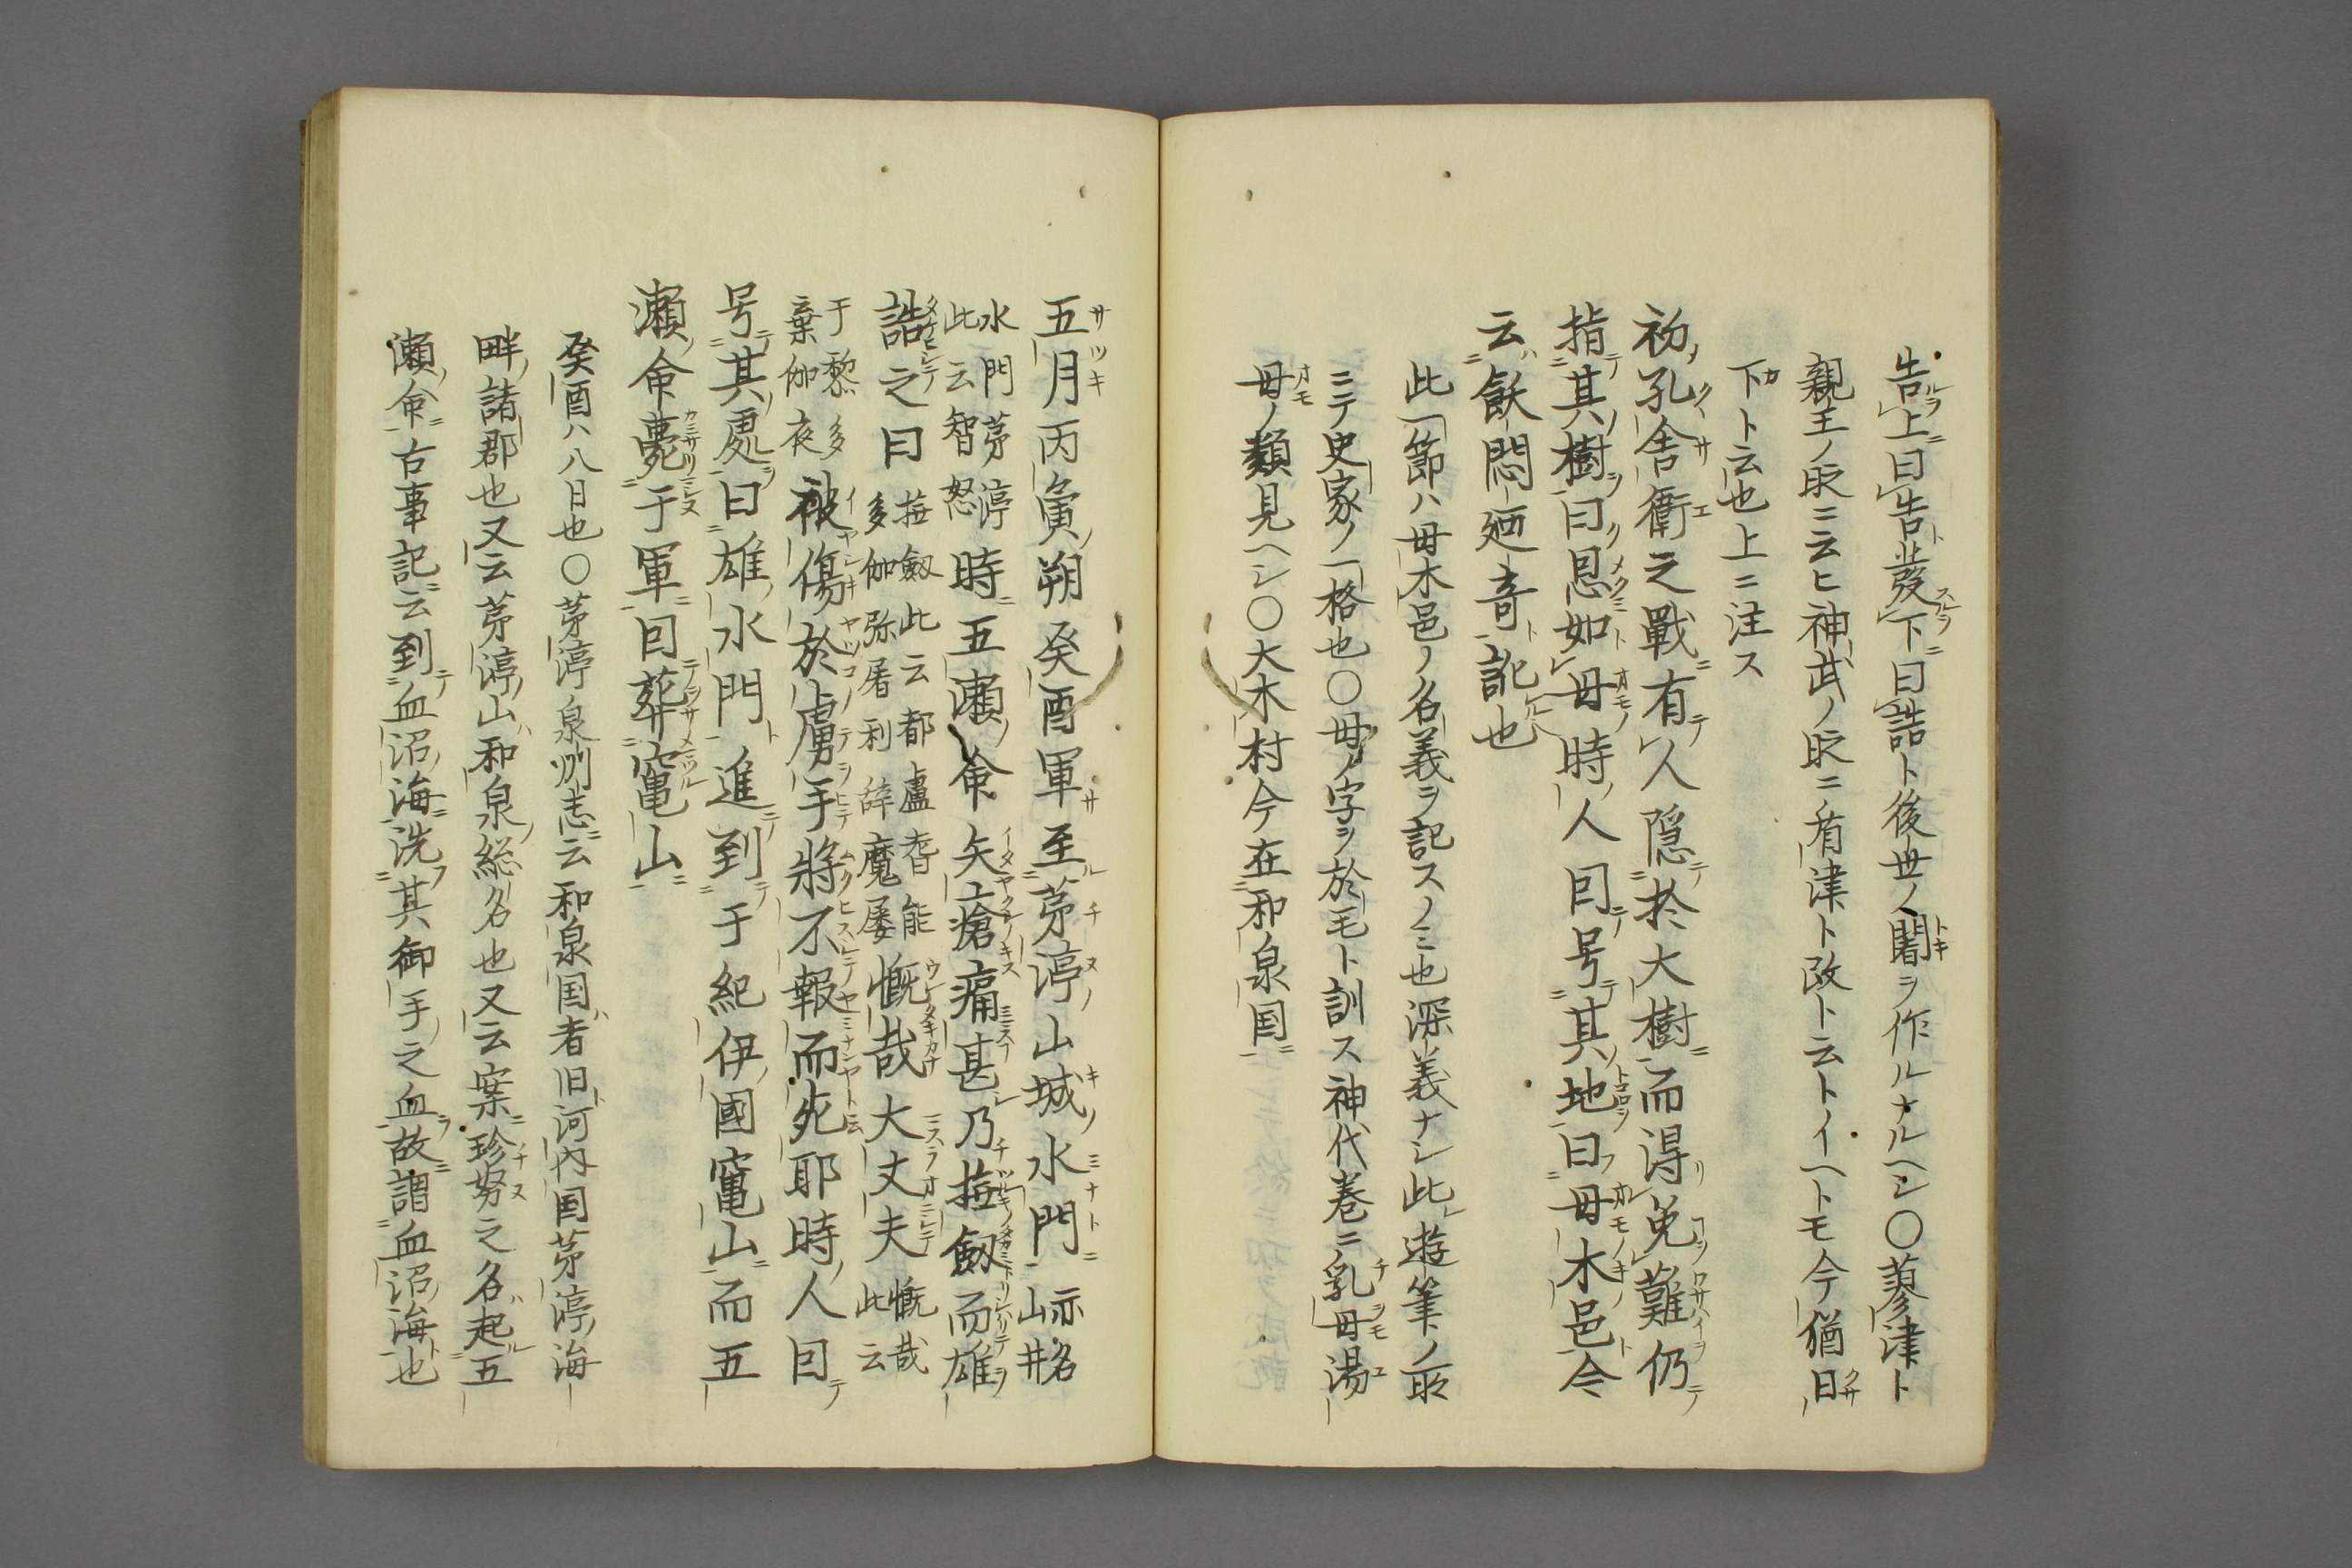 告上曰告發下曰誥ト後世ノ闇ヲ作ルナルヘシ〇蓼津ト
親王ノ時ニ云ヒ神武ノ時ニ有津ト改ト云トイヘトモ今猶日
下ト云也上ニ注ス
初孔舎衛之戰有人隠於大樹而得免難仍
指其樹曰恩如母時人囙号其地曰母木邑今
云飫悶廼奇訛也
此一節ハ母木邑ノ名義ヲ記スノミ也深義ナシ此遊筆ノ所
ニテ史家ノ一格也〇母ノ字ヲ於毛ト訓ス神代巻ニ乳母湯
母ノ類見ヘシ〇大木村今在和泉国
五月丙寅朔癸酉軍至茅渟山城水門亦名山井
水門茅渟此云智怒時五瀬命矢瘡痛甚乃撫劔而雄
誥之曰撫劔此云都盧耆能多伽弥屠利辞魔屡慨哉大丈夫慨哉此云
于黎多棄伽夜被傷於虜手將不報而死耶時人囙
号其處曰雄水門進到于紀伊國竃山而五
瀬命薨于軍囙葬竃山
癸酉ハ八日也〇茅渟泉州志云和泉国者旧河内国茅渟海
畔諸郡也又云茅渟山和泉総名也又云案珍努之名起五
瀬命古事記云到血沼海洗其御手之血故謂血沼海也